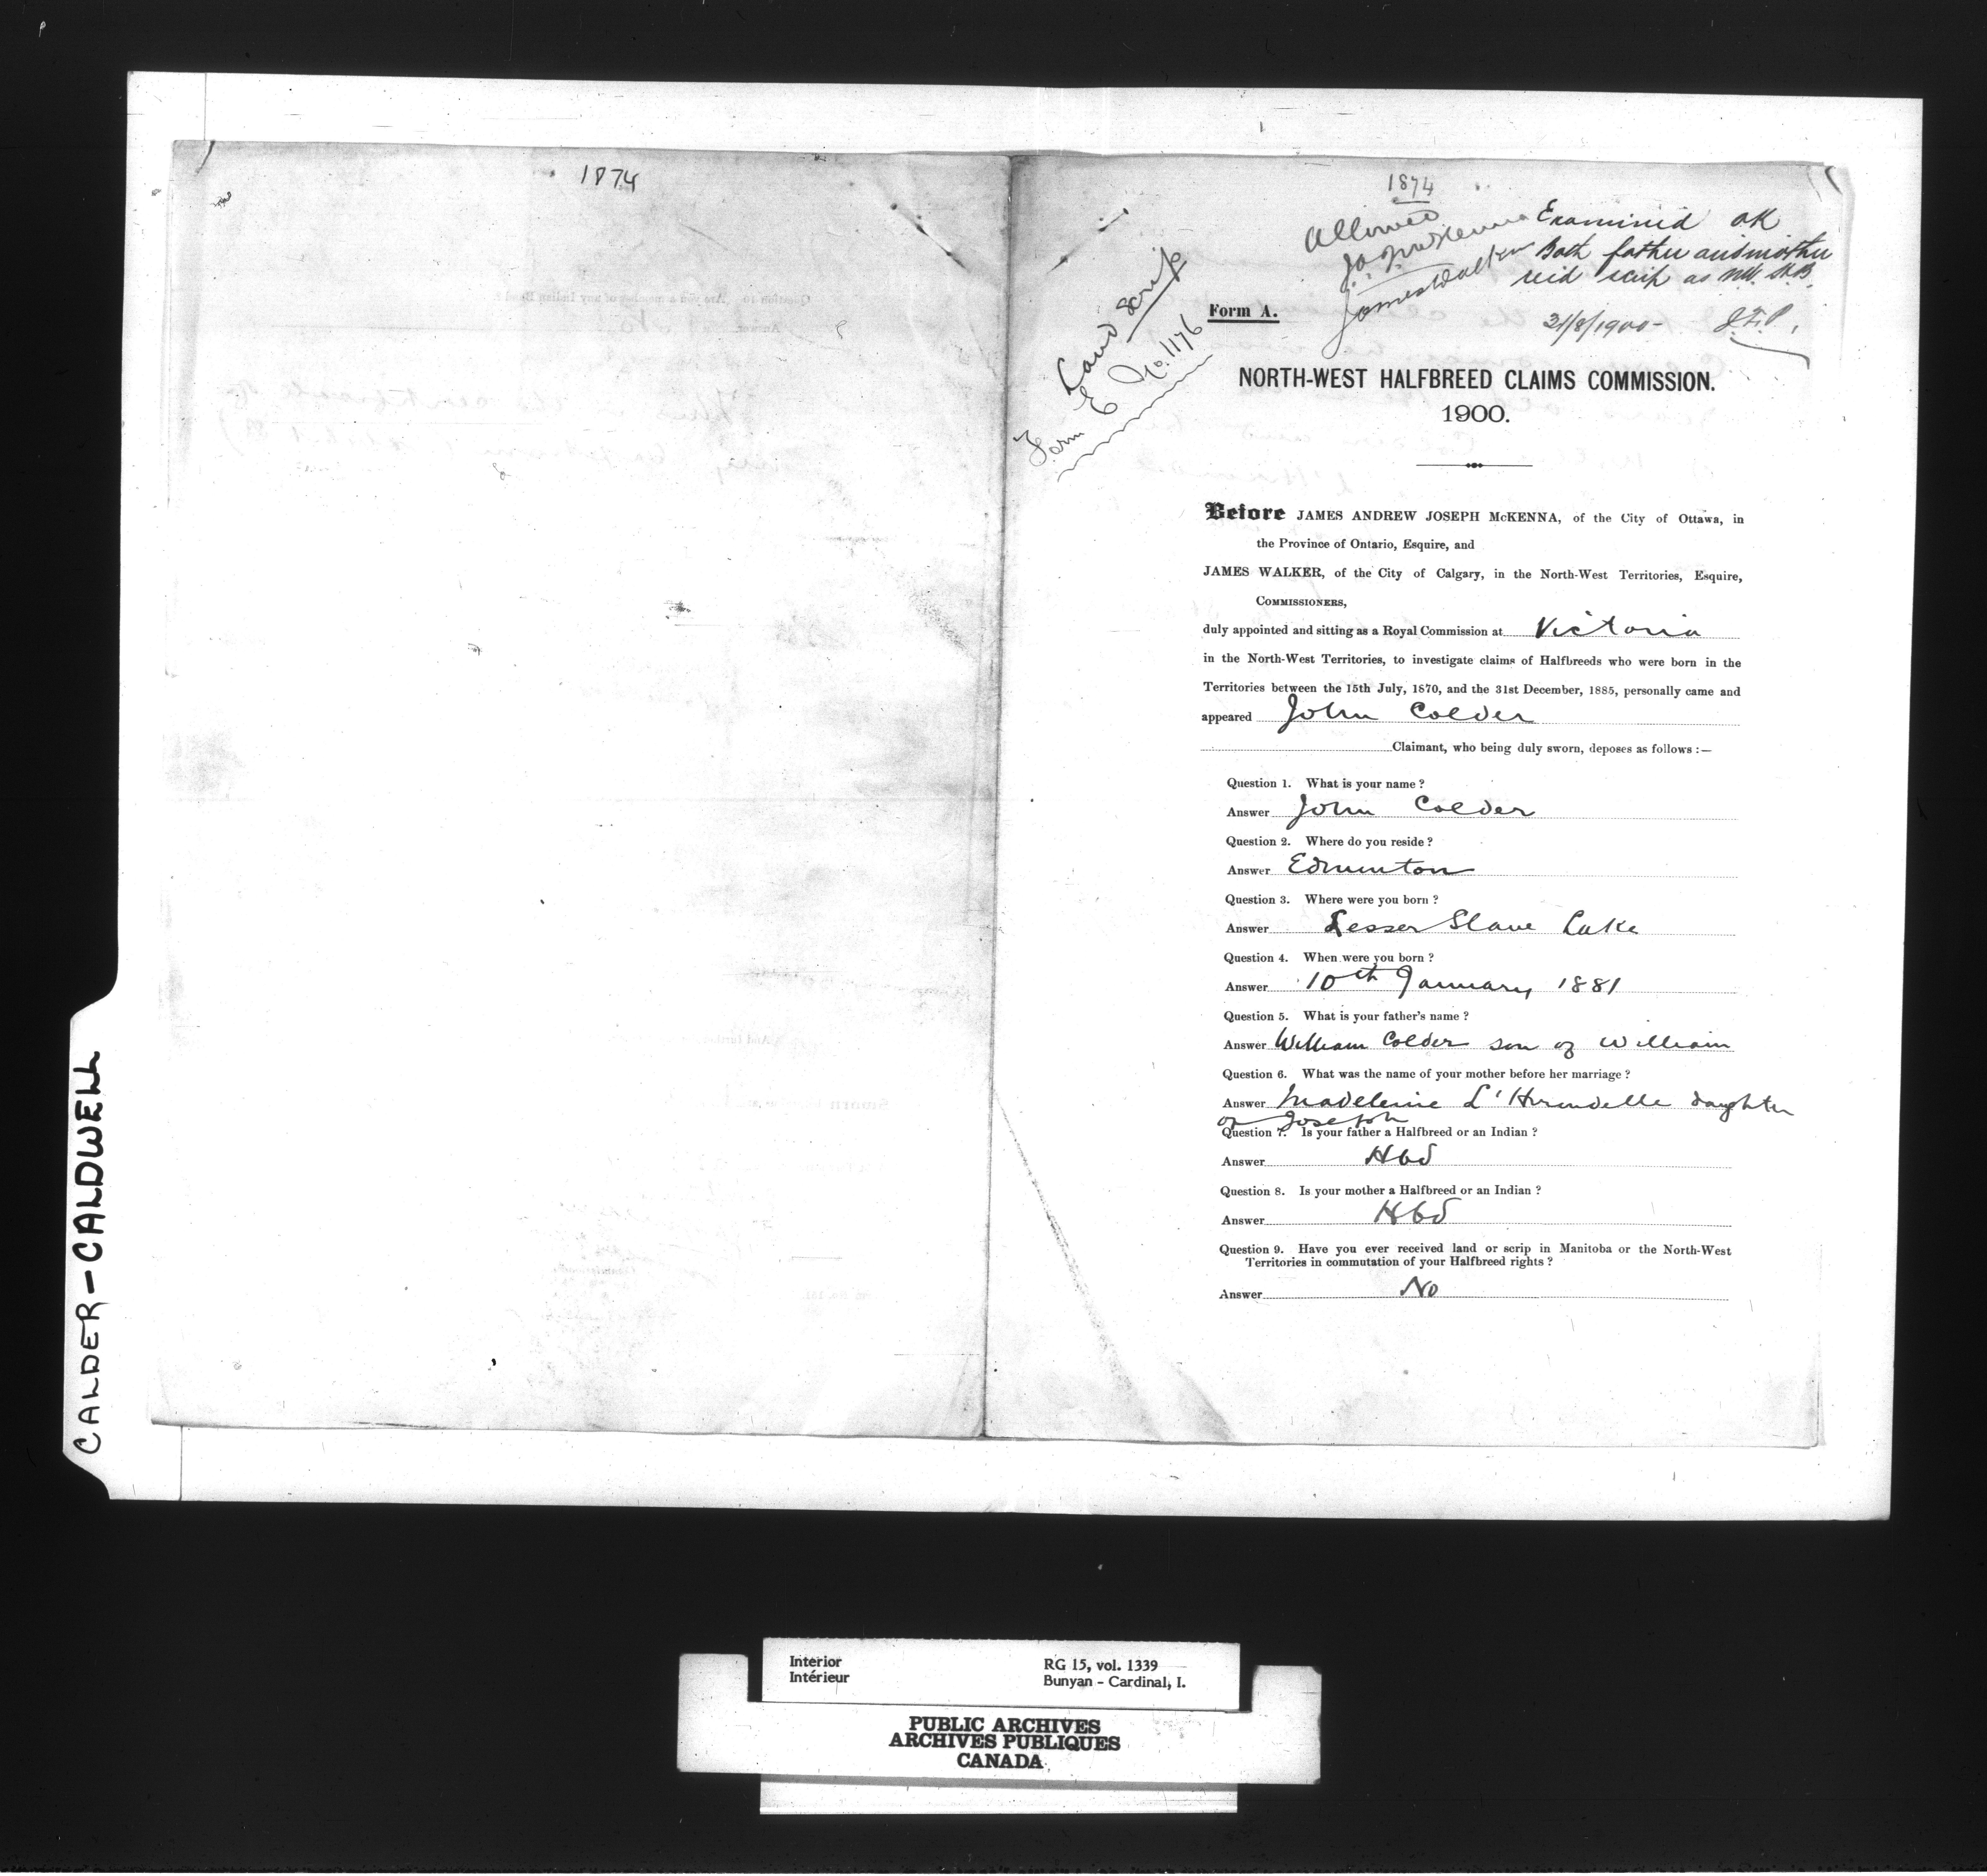 1874
1874
Allowed
J.A.J. McKenna
James Walker
Examined OK
Both father and mother
recd scrip as N.W. H.B.
21/8/1900 - J.F.P.
Land Scrip
Form E No. 1176
Form A.
NORTH-WEST HALFBREED CLAIMS COMMISSION.
1900.
Before JAMES ANDREW JOSEPH McKENNA, of the City of Ottawa, in
the Province of Ontario, Esquire, and
JAMES WALKER, of the City of Calgary, in the North-West Territories, Esquire,
COMMISSIONERS,
duly appointed and sitting as a Royal Commission at Victoria
in the North-West Territories, to investigate claims of Halfbreeds who were born in the
Territories between the 15th July, 1870, and the 31st December, 1885, personally came and
appeared John Colder
Claimant, who being duly sworn, deposes as follows :—
Question 1. What is your name ?
Answer John Colder
Question 2. Where do you reside ?
Answer Edmonton
Question 3. Where were you born ?
Answer Lesser Slave Lake
Question 4. When were you born ?
Answer 10th January 1881
Question 5. What is your father's name ?
Answer William Colder son of William
Question 6. What was the name of your mother before her marriage ?
Answer Madeleine L'Hirondelle daughter
of Joseph
Question 7. Is your father a Halfbreed or an Indian ?
Answer Hbd
Question 8. Is your mother a Halfbreed or an Indian ?
Answer Hbd
Question 9. Have you ever received land or scrip in Manitoba or the North-West
Territories in commutation of your Halfbreed rights ?
Answer No
CALDER-CALDWELL
Interior
Intérieur
RG 15, vol. 1339
Bunyan - Cardinal, I.
PUBLIC ARCHIVES
ARCHIVES PUBLIQUES
CANADA